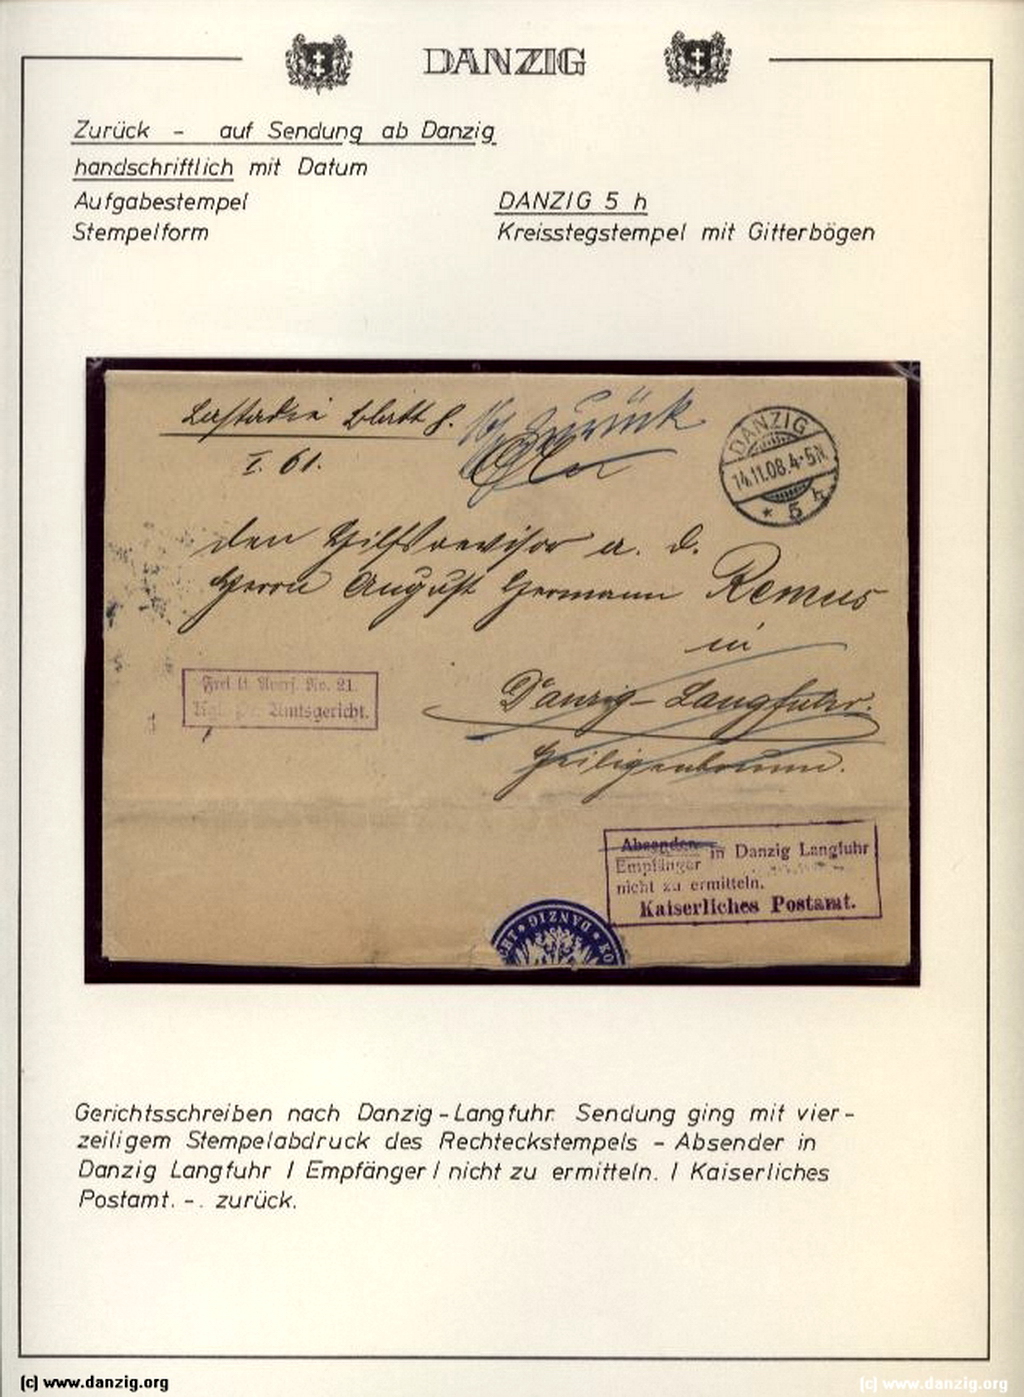 DANZIG
Zurück - auf Sendung ab Danzig
handschriftlich mit Datum
Aufgabestempel DANZIG 5 h
Stempelform Kreisstegstempel mit Gitterbögen
Lastadie Blatt 8.
I. 61.
Zurück
An
DANZIG
14.11.08.4-5N
* 5 h
den Hilfsrevisor a. D.
Herrn August Hermann Remus
in
Danzig-Langfuhr.
Heiligenbrunn.
Frei lt. Avers. No. 21.
Kgl. Pr. Amtsgericht.
Absender in Danzig Langfuhr
Empfänger
nicht zu ermitteln.
Kaiserliches Postamt.
CHT * DANZIG * KO
Gerichtsschreiben nach Danzig-Langfuhr. Sendung ging mit vier-
zeiligem Stempelabdruck des Rechteckstempels - Absender in
Danzig Langfuhr / Empfänger / nicht zu ermitteln. / Kaiserliches
Postamt. -. zurück.
(c) www.danzig.org
(c) www.danzig.org